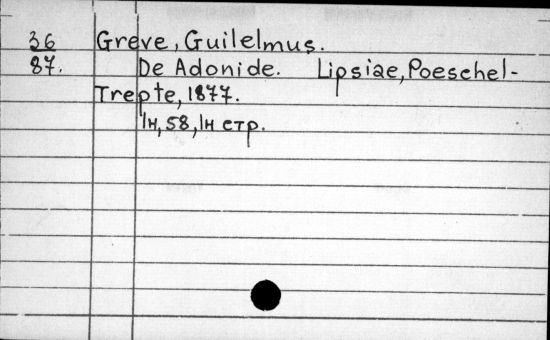 36 Greve, Guilelmus.
87. De Adonide. Lipsiae, Poeschel-
Trepte, 1877.
1н, 58, 1н стр.